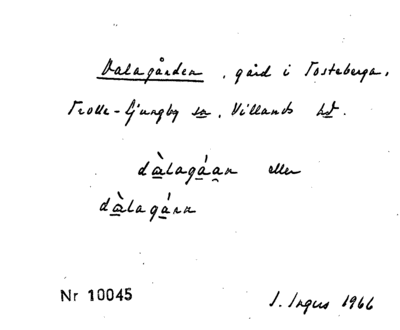 Dalagården, gård i Tosteberga,
Trolle-Ljungby sn, Villands hd.
dàlagáan eller
dàlagánn
Nr 10045
S. Ingers 1966